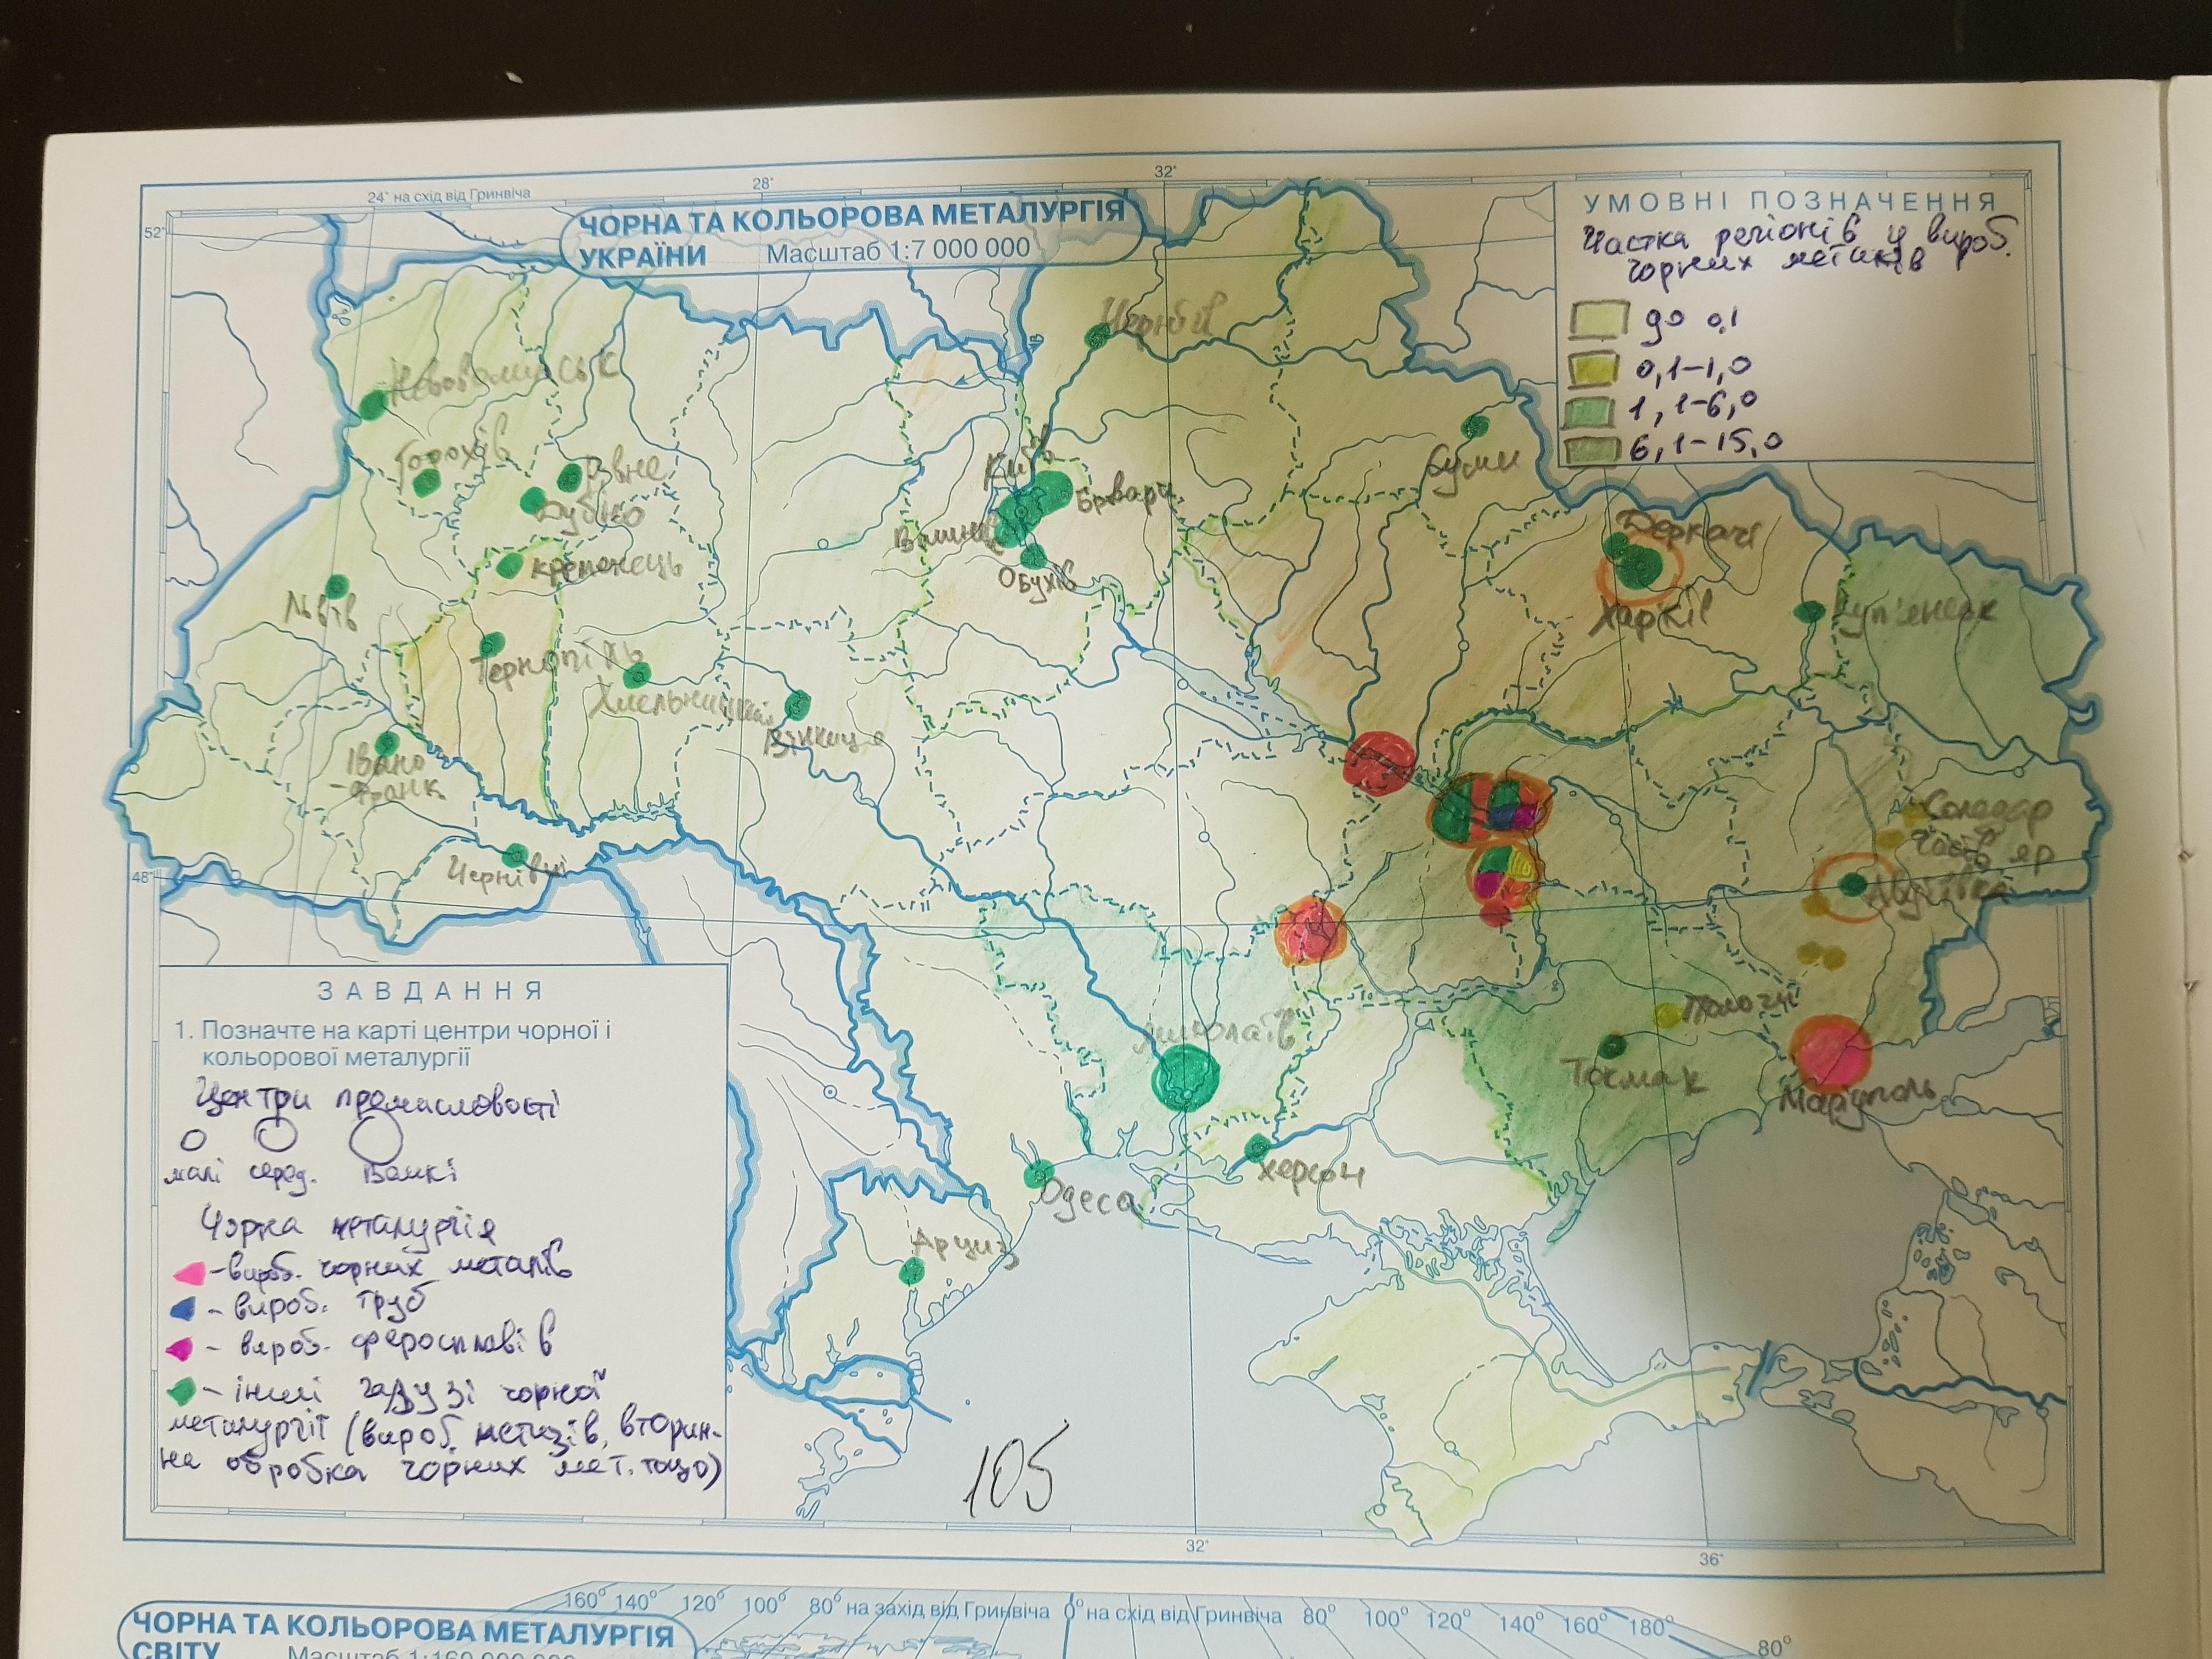 24° на схід від Гринвіча
28°
32°
52°
ЧОРНА ТА КОЛЬОРОВА МЕТАЛУРГІЯ
УКРАЇНИ Масштаб 1:7 000 000
УМОВНІ ПОЗНАЧЕННЯ
Частка регіонів у вироб.
чорних металів
до 0,1
0,1-1,0
1,1-6,0
6,1-15,0
Чернігів
Нововолинськ
Горохів
Рівне
Дубно
Кременець
Київ
Бровари
Обухів
Суми
Деркачі
Харків
Куп'янськ
Львів
Тернопіль
Хмельницький
Вінниця
Івано
-Франк
Чернівці
48°
Соледар
Часів яр
Авдіївка
Миколаїв
Пологи
Токмак
Маріуполь
Херсон
Одеса
Арциз
ЗАВДАННЯ
1. Позначте на карті центри чорної і
кольорової металургії
Центри промисловості
малі серед. Великі
Чорна металургія
-вироб. чорних металів
- вироб. труб
- вироб. феросплавів
- інші галузі чорної
металургії (вироб. метизів, вторин-
на обробка чорних мет. тощо)
105
32°
36°
160° 140° 120° 100° 80° на захід від Гринвіча 0° на схід від Гринвіча 80° 100° 120° 140° 160° 180°
80°
ЧОРНА ТА КОЛЬОРОВА МЕТАЛУРГІЯ
СВІТУ Масштаб 1:160 000 000